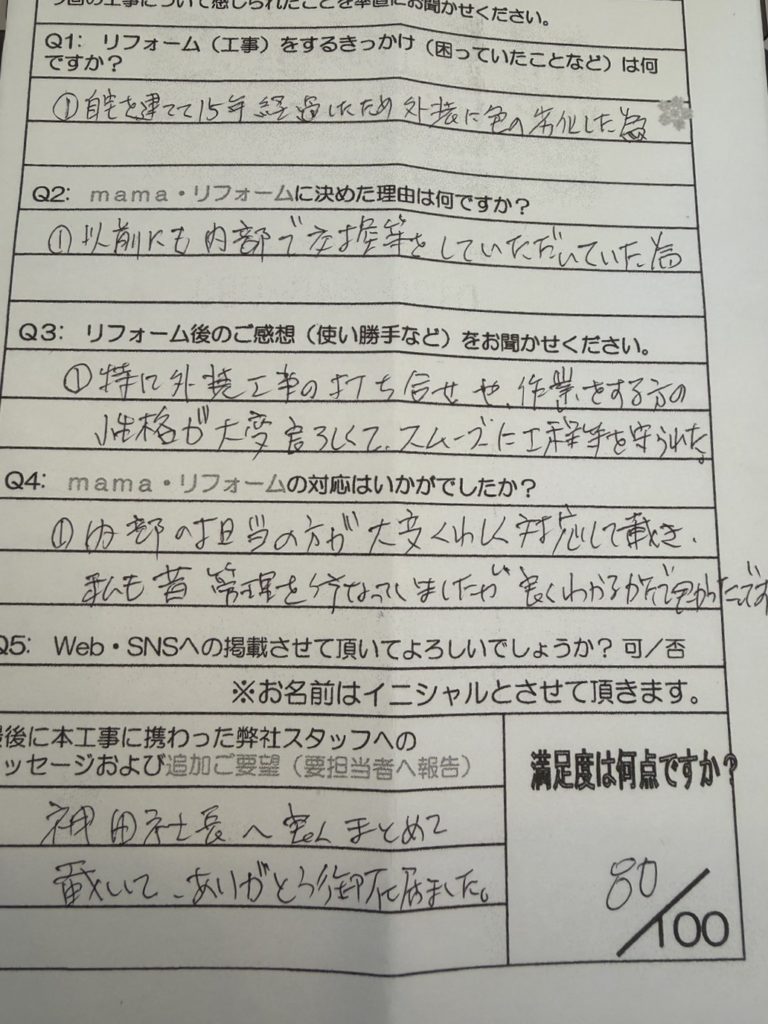 今回の工事について感じられたことを率直にお聞かせください。
Q1: リフォーム（工事）をするきっかけ（困っていたことなど）は何
ですか？
①自宅を建てて15年経過したため外装に色の劣化した為
Q2: ｍａｍａ・リフォームに決めた理由は何ですか？
①以前にも内部で交換等をしていただいていた為
Q3: リフォーム後のご感想（使い勝手など）をお聞かせください。
①特に外装工事の打ち合せや、作業をする方の
性格が大変宜ろしくて、スムーズに工程等を守られた。
Q4: ｍａｍａ・リフォームの対応はいかがでしたか？
①内部の担当の方が大変くわしく対応して戴き、
私も昔管理を行なっていましたが良くわかる方で良かったです
Q5: Web・SNSへの掲載させて頂いてよろしいでしょうか？可／否
※お名前はイニシャルとさせて頂きます。
最後に本工事に携わった弊社スタッフへの
ッセージおよび追加ご要望（要担当者へ報告）
満足度は何点ですか？
神田社長へ良くまとめて
戴いて、ありがとう御座居ました。
80/100